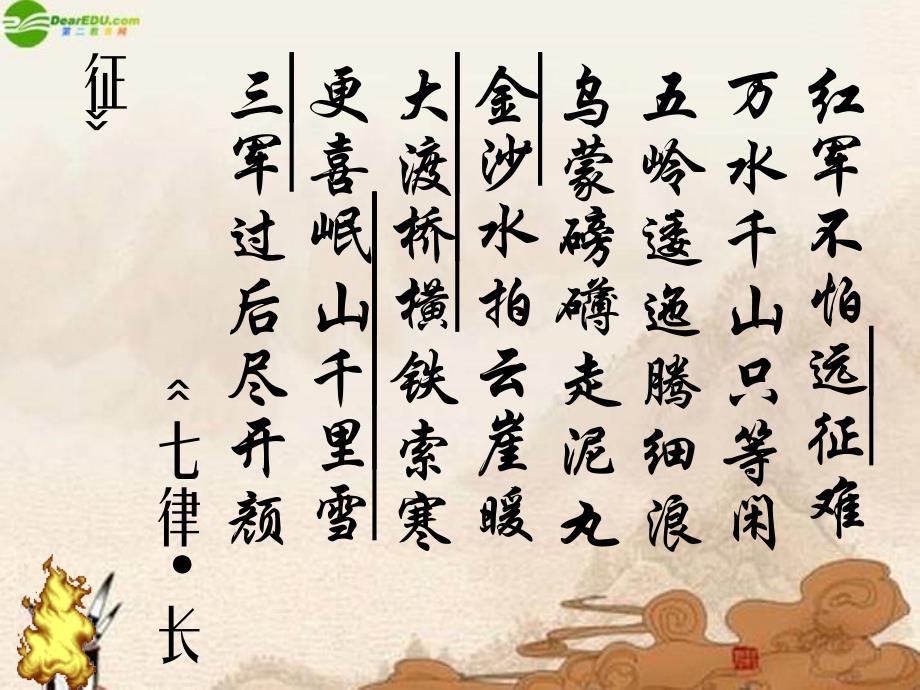 DearEDU.com
第二教育网
红军不怕远征难
万水千山只等闲
五岭逶迤腾细浪
乌蒙磅礴走泥丸
金沙水拍云崖暖
大渡桥横铁索寒
更喜岷山千里雪
三军过后尽开颜
《七律•长
征》